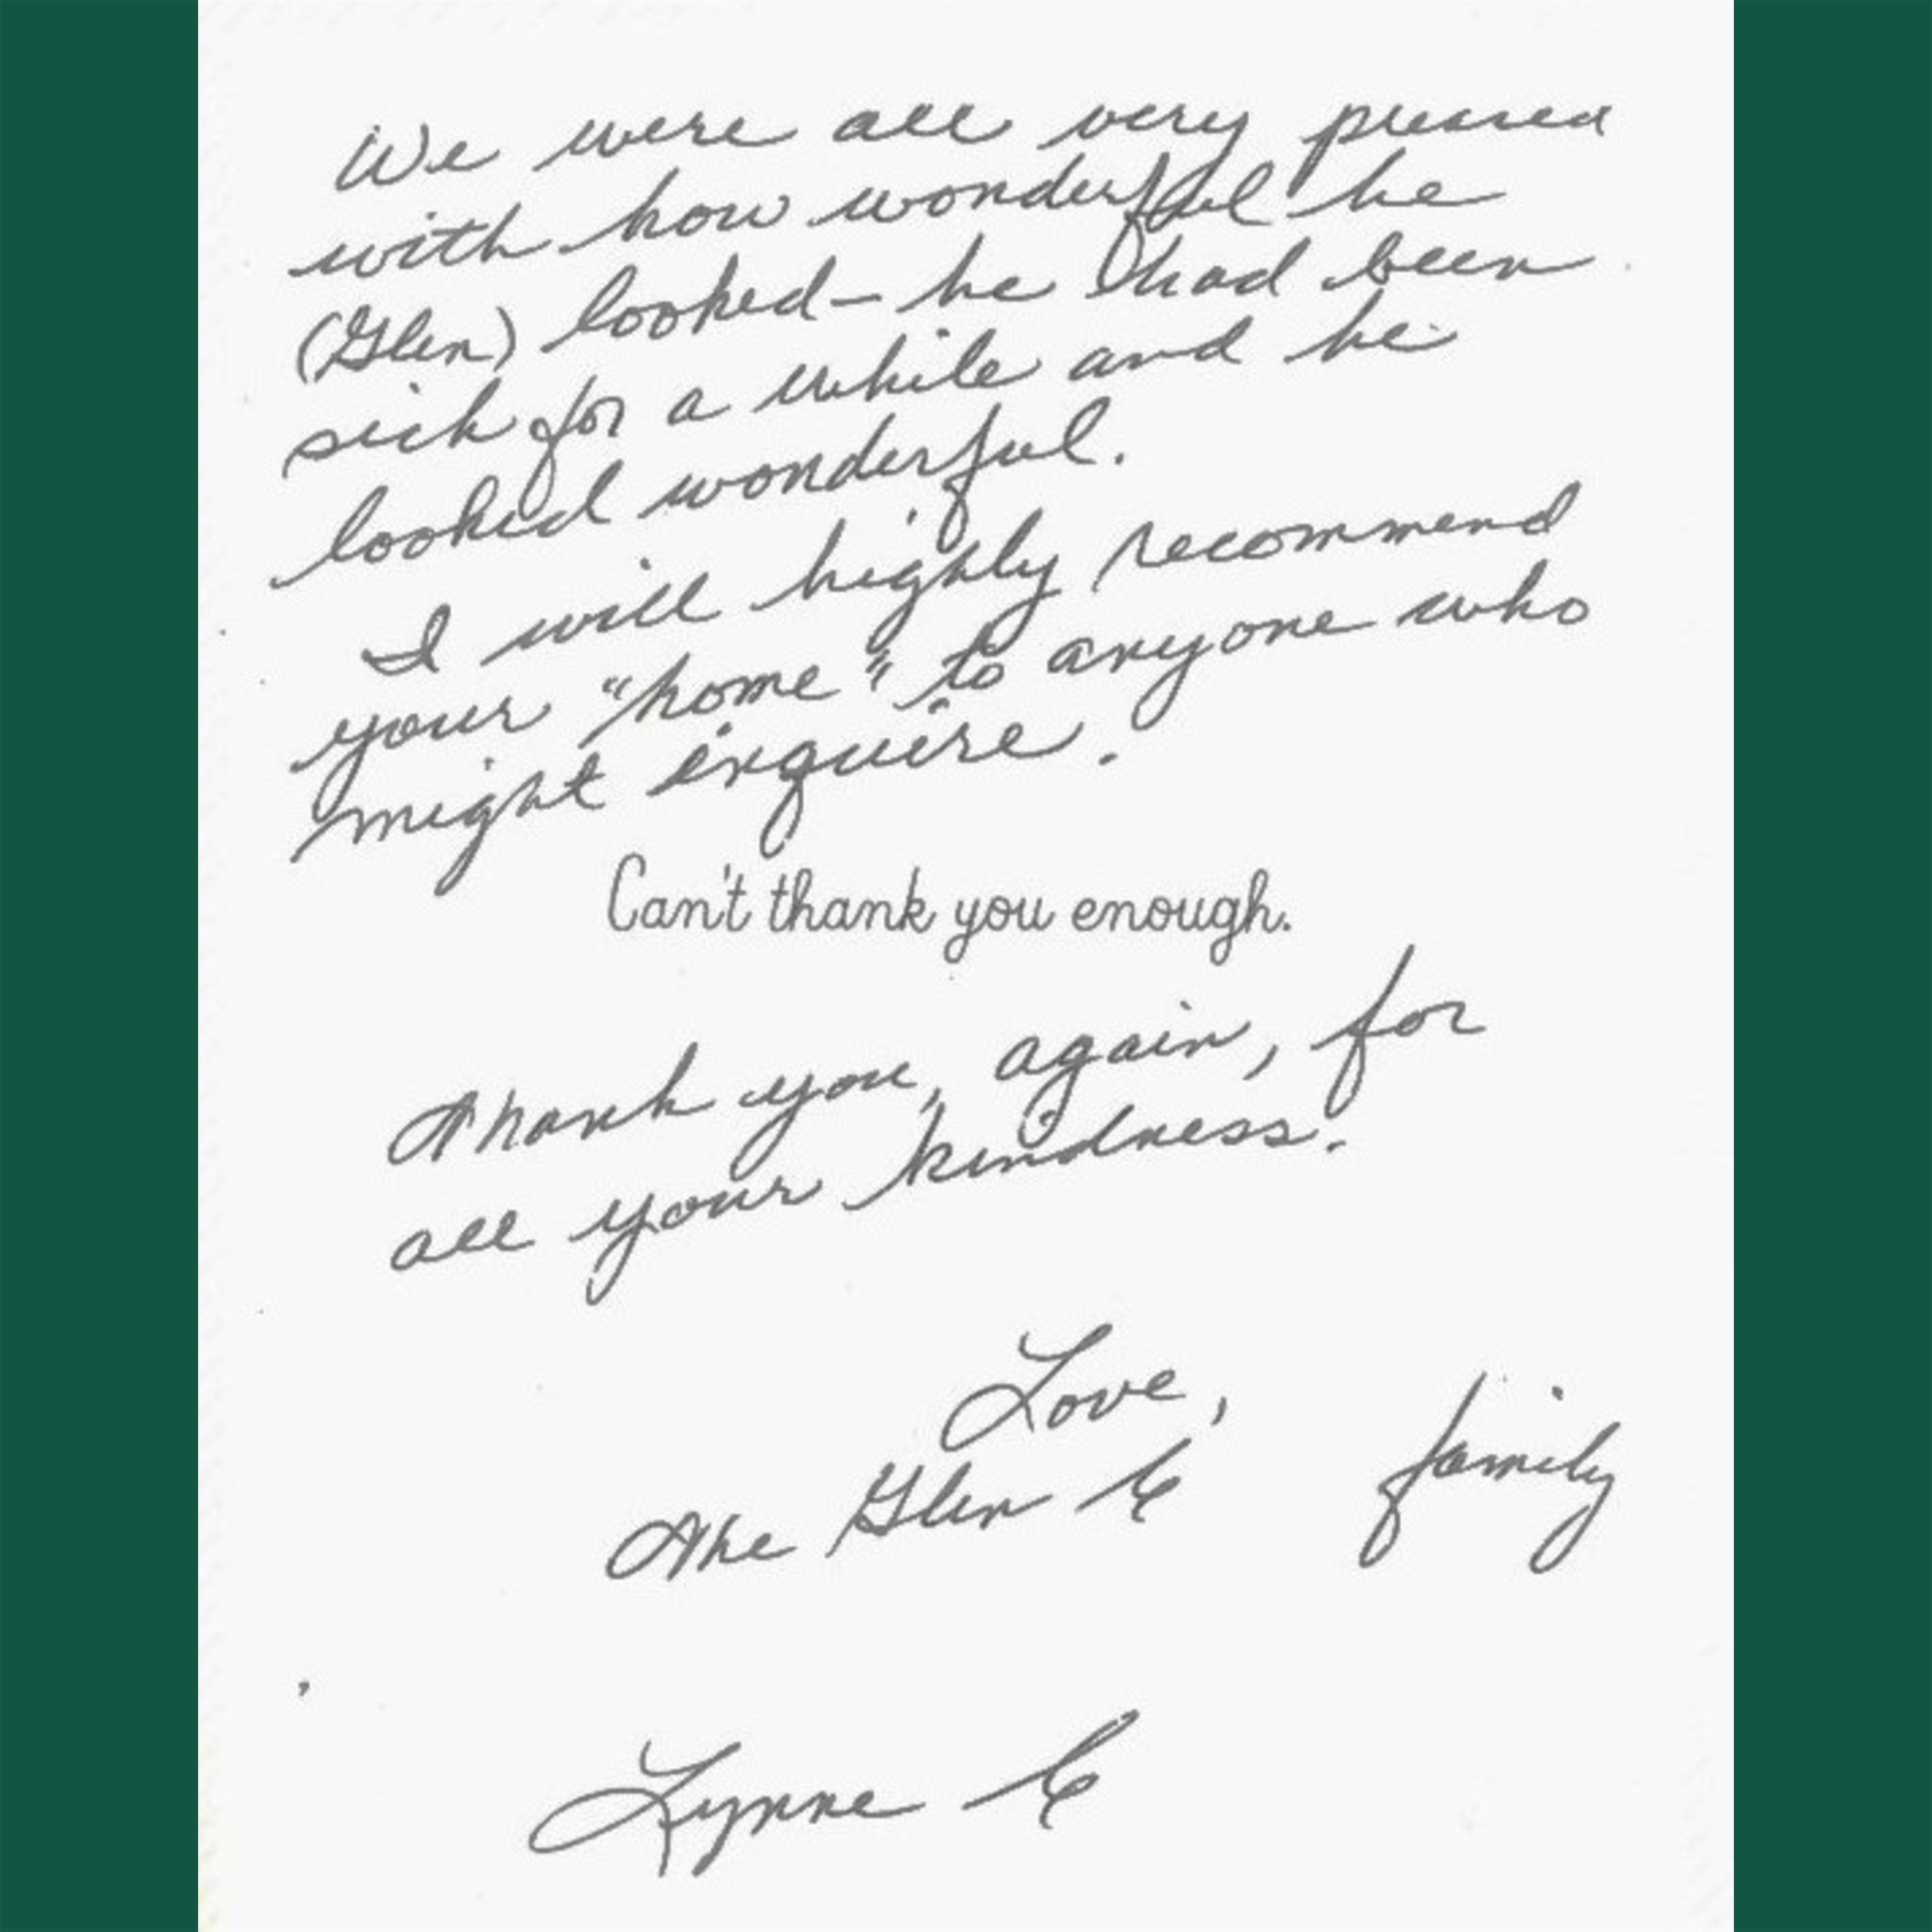 We were all very pleased
with how wonderful he
(Glen) looked— he had been
sick for a while and he
looked wonderful.
I will highly recommend
your "home" to anyone who
might inquire.
Can't thank you enough.
Thank you, again, for
all your kindness.
Love,
The Glen C family
Lynne C